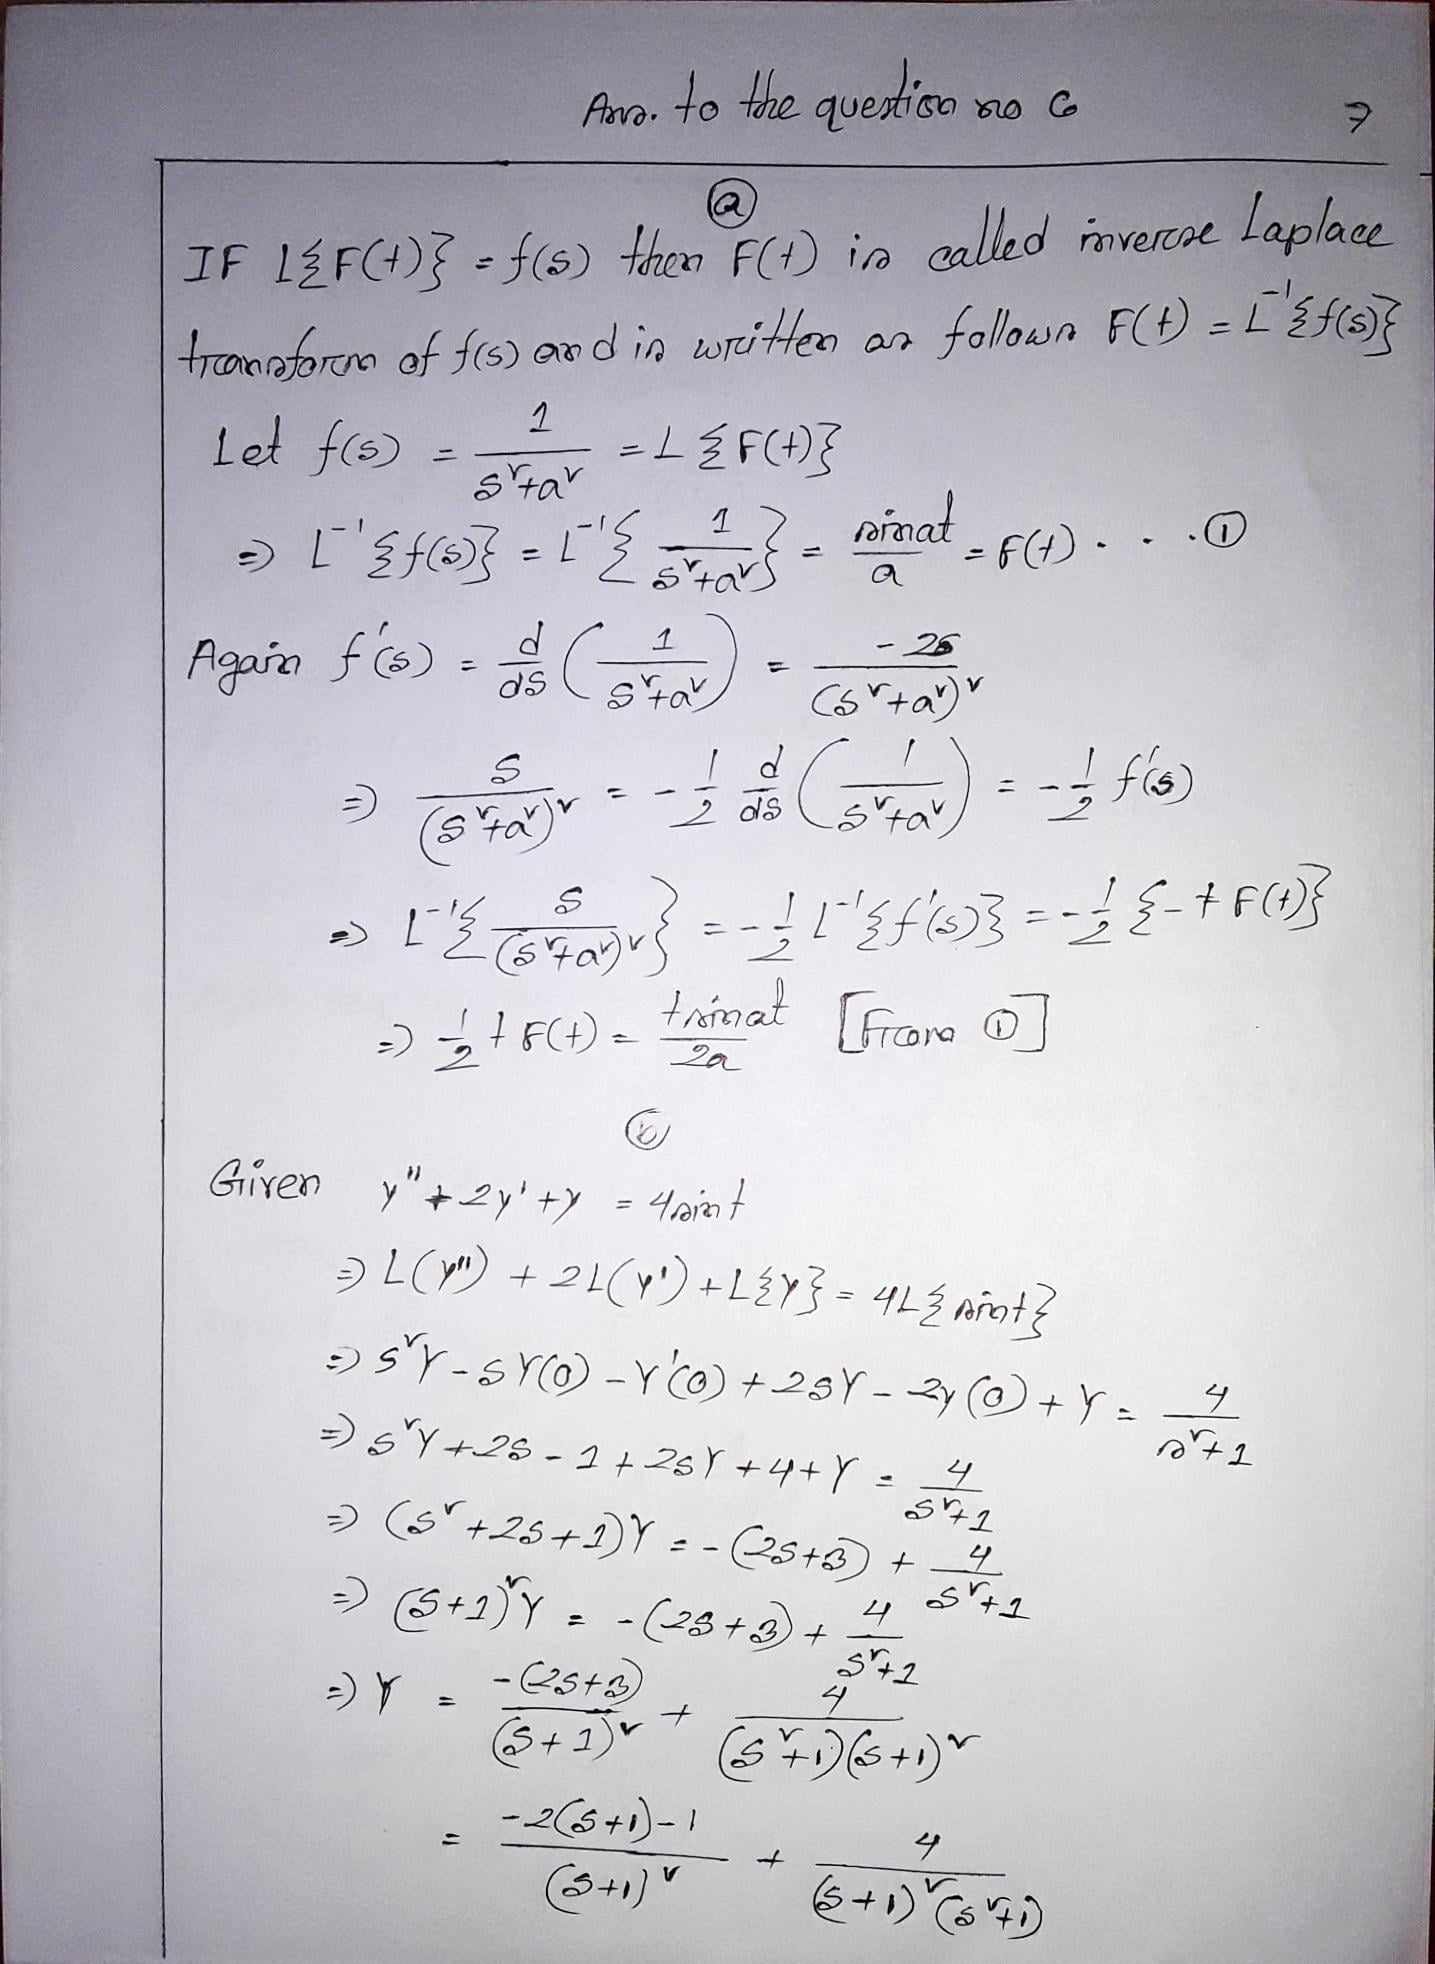 Ans. to the question no 6
7
(a)
IF L{F(t)} = f(s) then F(t) is called inverse Laplace
transform of f(s) and is written as follows F(t) = L⁻¹{f(s)}
Let f(s) = 1/(s²+a²) = L{F(t)}
⇒ L⁻¹{f(s)} = L⁻¹{1/(s²+a²)} = sinat/a = F(t) . . . ①
Again f'(s) = d/ds (1/(s²+a²)) = -2s/(s²+a²)²
⇒ s/(s²+a²)² = -1/2 d/ds (1/(s²+a²)) = -1/2 f'(s)
⇒ L⁻¹{s/(s²+a²)²} = -1/2 L⁻¹{f'(s)} = -1/2 {-t F(t)}
⇒ 1/2 t F(t) = tsinat/2a [From ①]
(b)
Given y" + 2y' + y = 4sint
⇒ L(y") + 2L(y') + L{y} = 4L{sint}
⇒ s²Y - sY(0) - Y'(0) + 2sY - 2y(0) + Y = 4/(s²+1)
⇒ s²Y + 2s - 1 + 2sY + 4 + Y = 4/(s²+1)
⇒ (s² + 2s + 1)Y = -(2s+3) + 4/(s²+1)
⇒ (s+1)²Y = -(2s+3) + 4/(s²+1)
⇒ Y = -(2s+3)/(s+1)² + 4/((s²+1)(s+1)²)
= (-2(s+1)-1)/(s+1)² + 4/((s+1)²(s²+1))